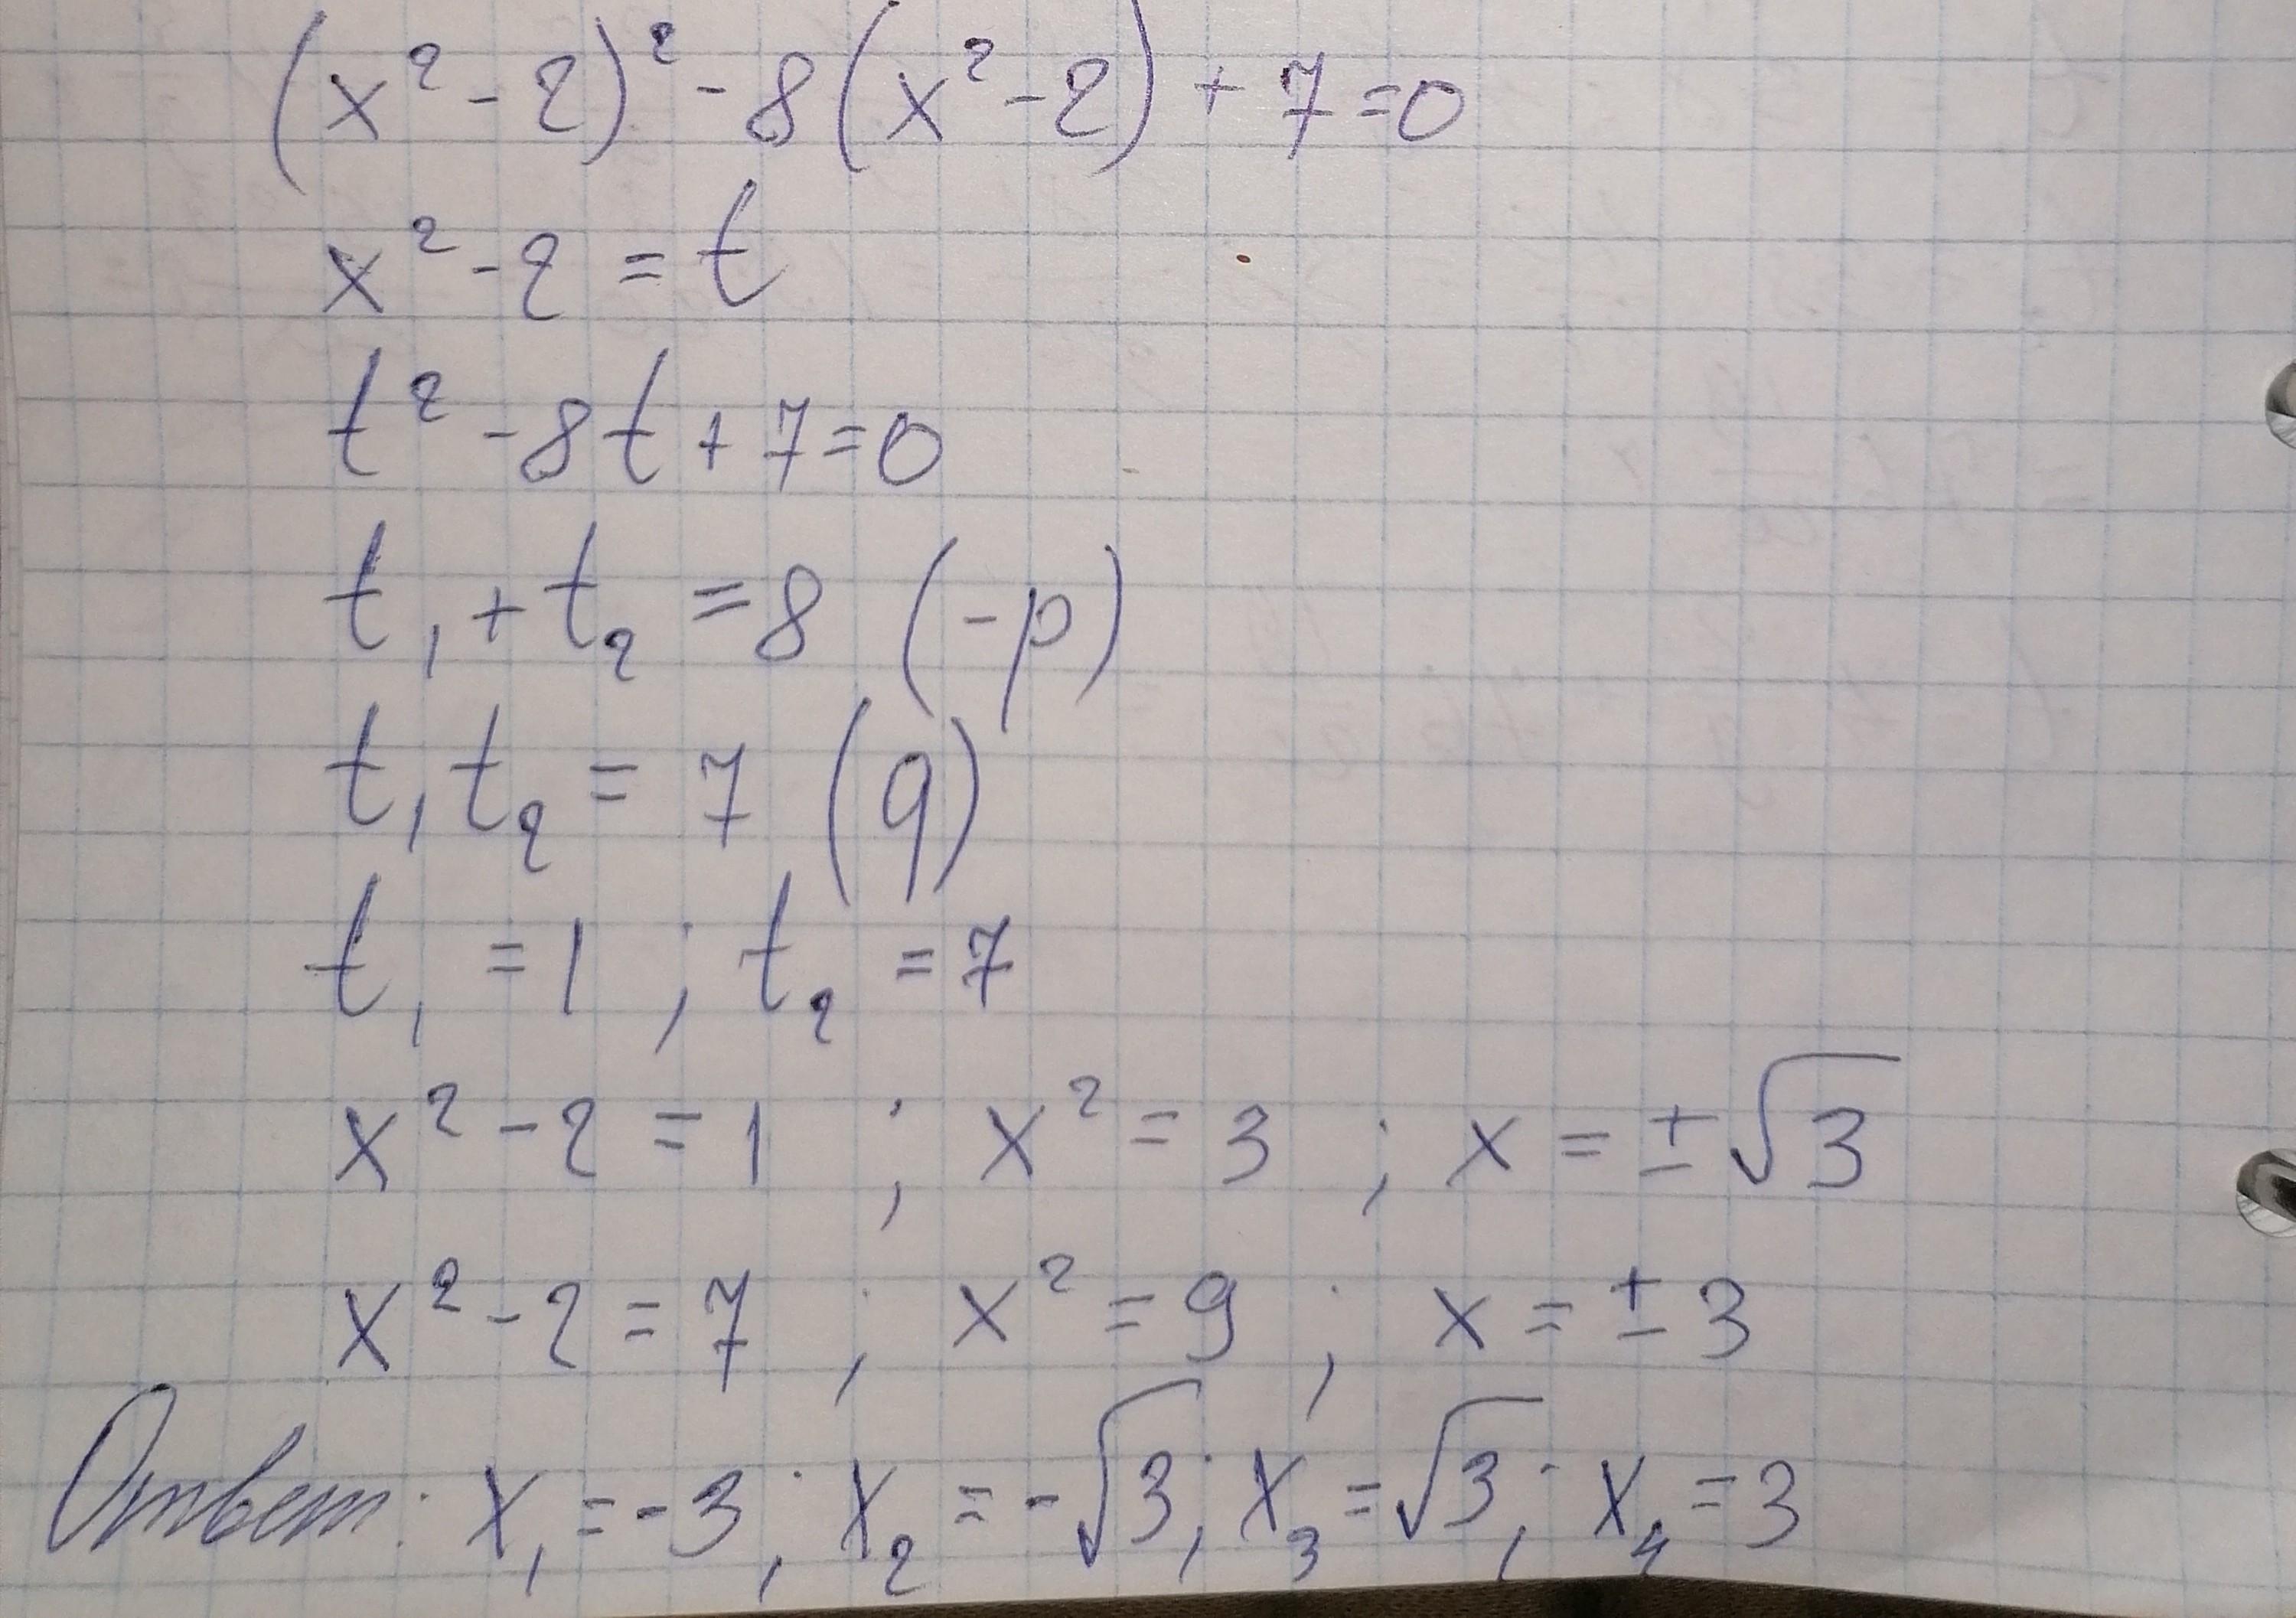 (x² - 2)² - 8(x² - 2) + 7 = 0
x² - 2 = t
t² - 8t + 7 = 0
t₁ + t₂ = 8 (-p)
t₁t₂ = 7 (q)
t₁ = 1 ; t₂ = 7
x² - 2 = 1 ; x² = 3 ; x = ±√3
x² - 2 = 7 ; x² = 9 ; x = ±3
Ответ: x₁ = -3; x₂ = -√3; x₃ = √3; x₄ = 3